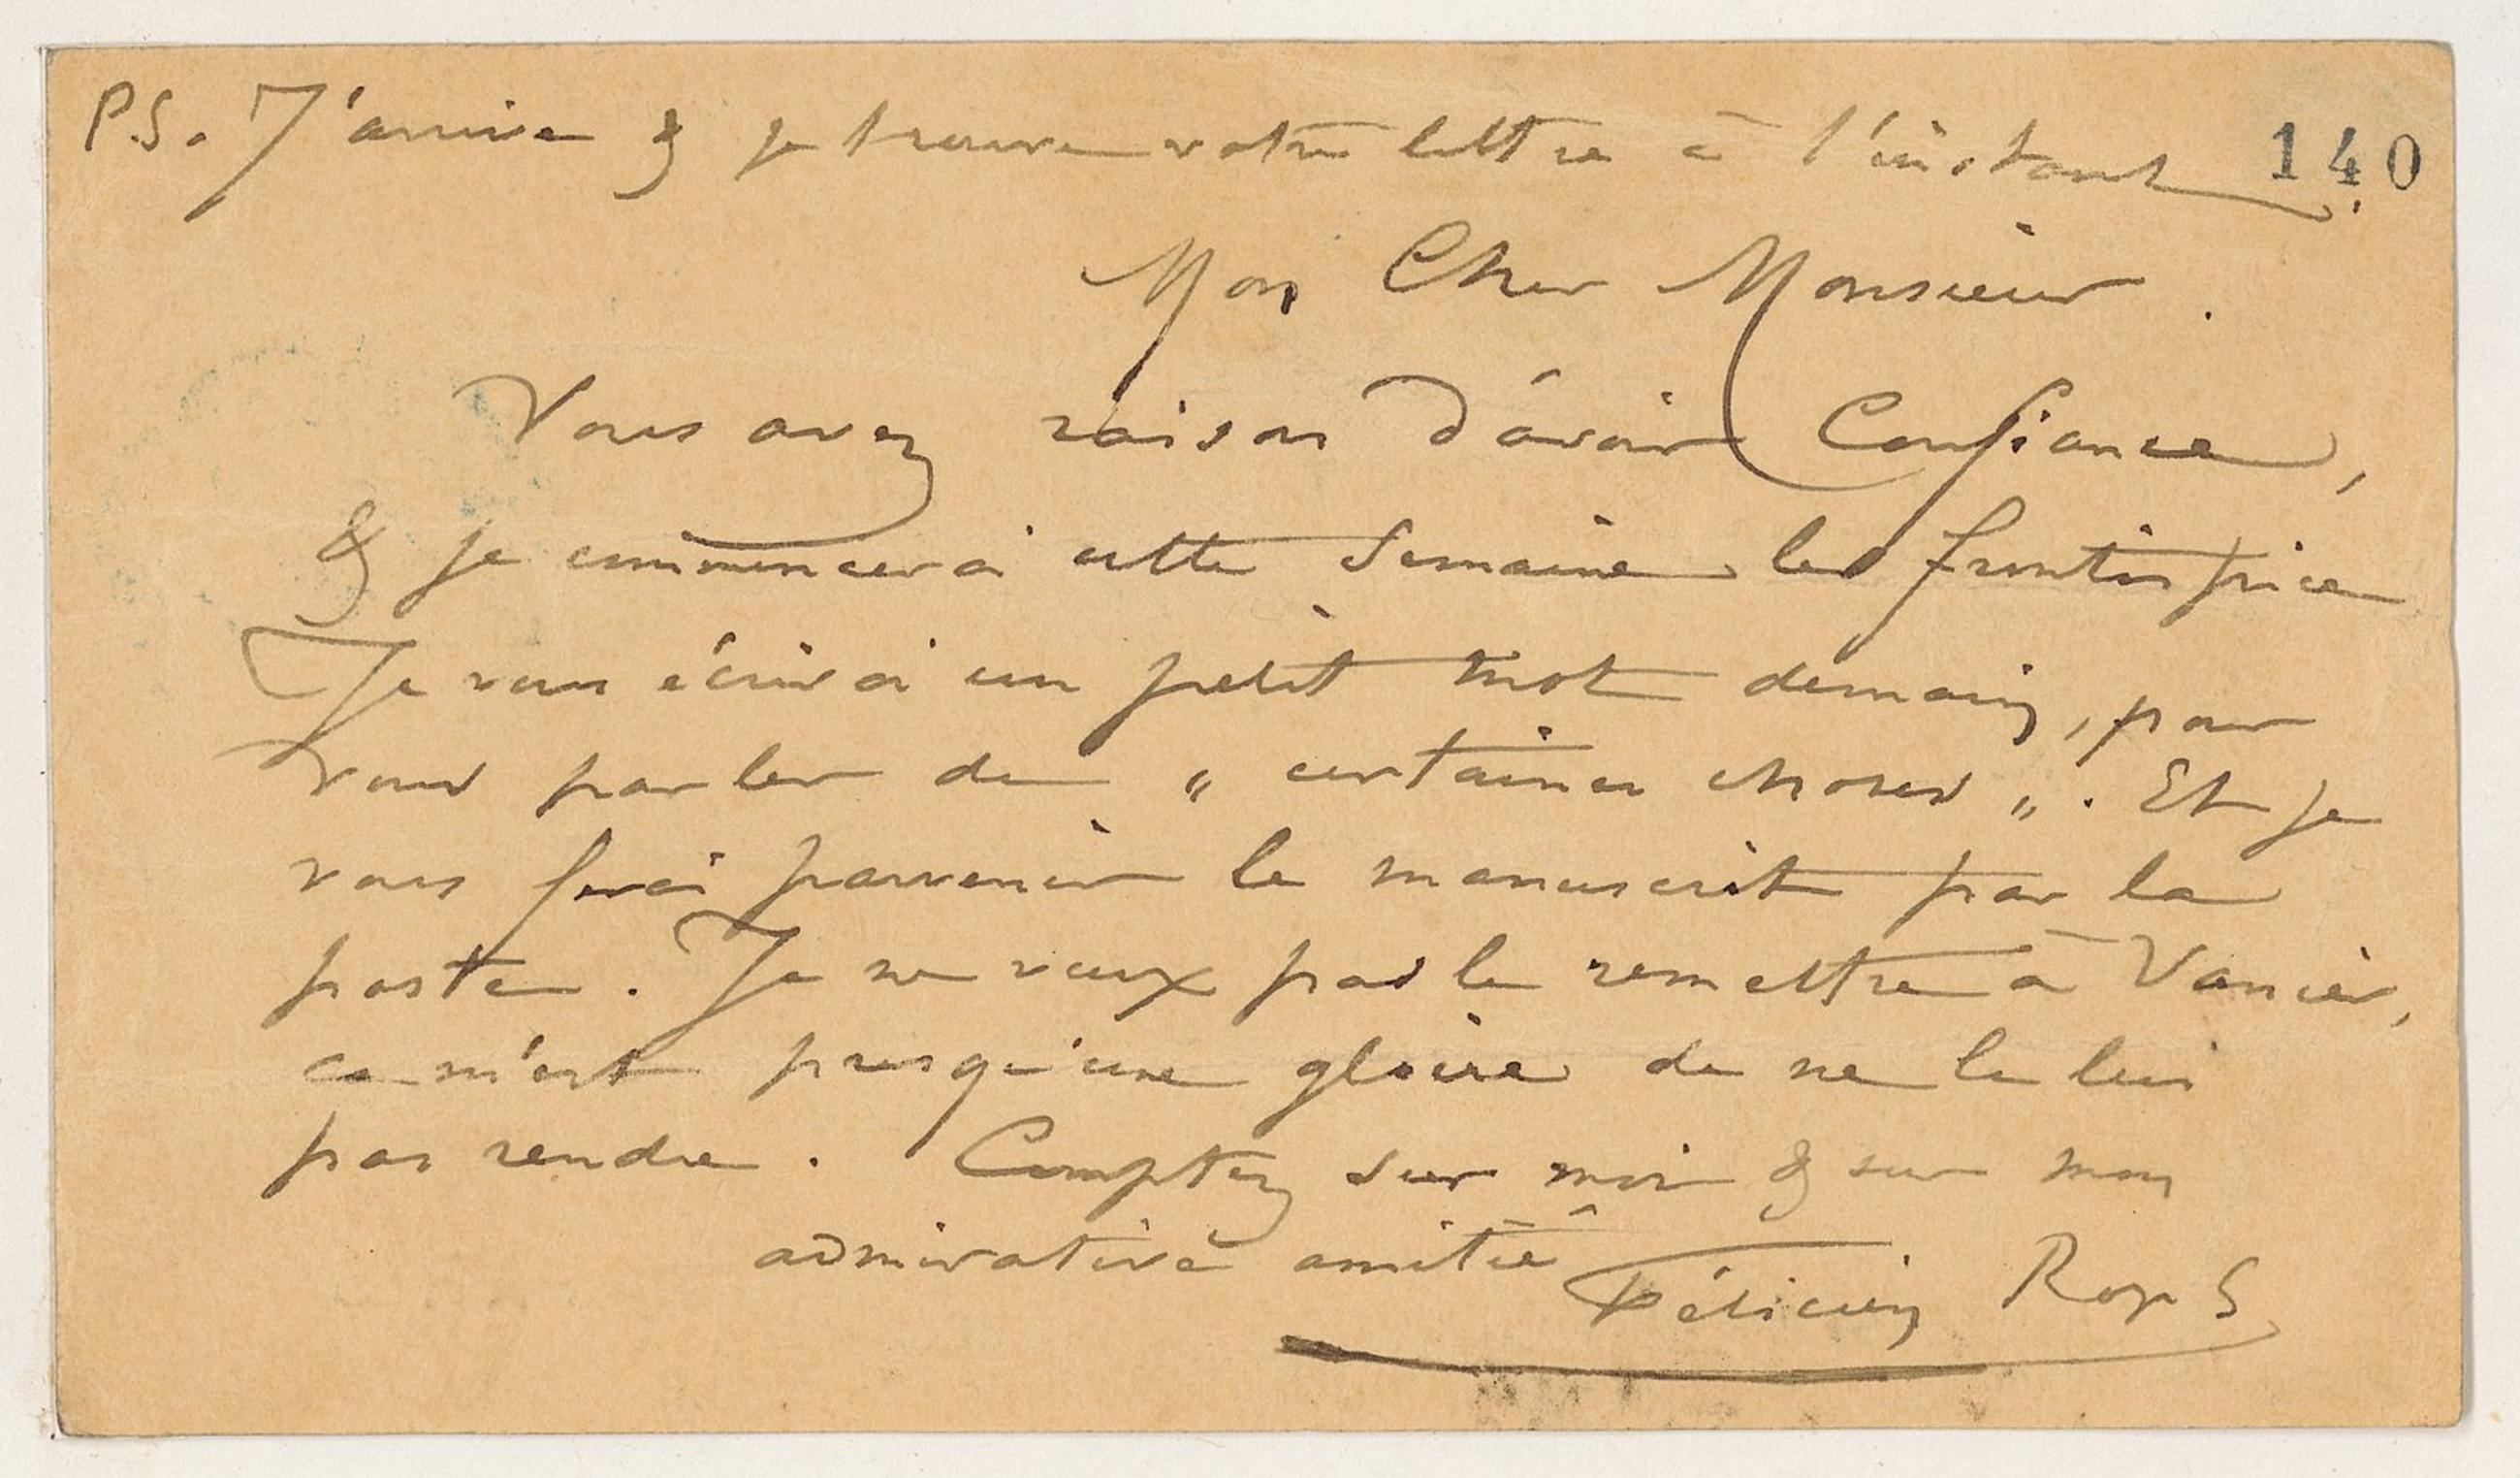 P.S. J'arrive & je trouve votre lettre à l'instant.
140
Mon Cher Monsieur.
Vous avez raison d'avoir Confiance,
& je commencerai cette semaine le frontispice
Je vous écrirai un petit mot demain, pour
vous parler de „ certaines choses „. Et je
vous ferai parvenir le manuscrit par la
poste. Je ne veux pas le remettre à Vanier,
ce m'est presqu'une gloire de ne le lui
pas rendre. Comptez sur moi & sur mon
admirative amitié
Félicien Rops